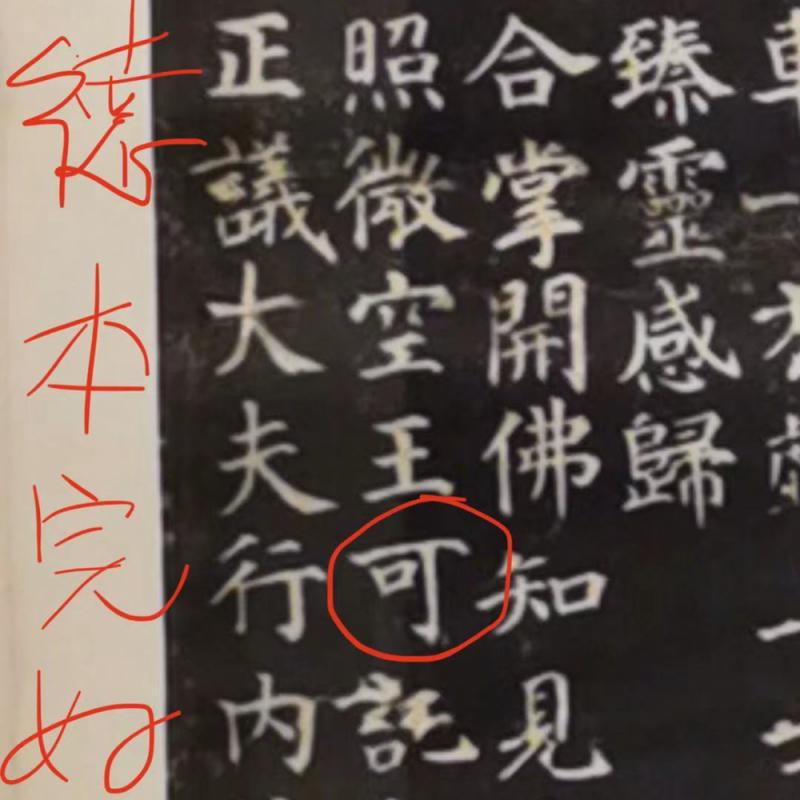 臻靈感歸
合掌開佛知見
照微空王可託
正議大夫行内
本完好